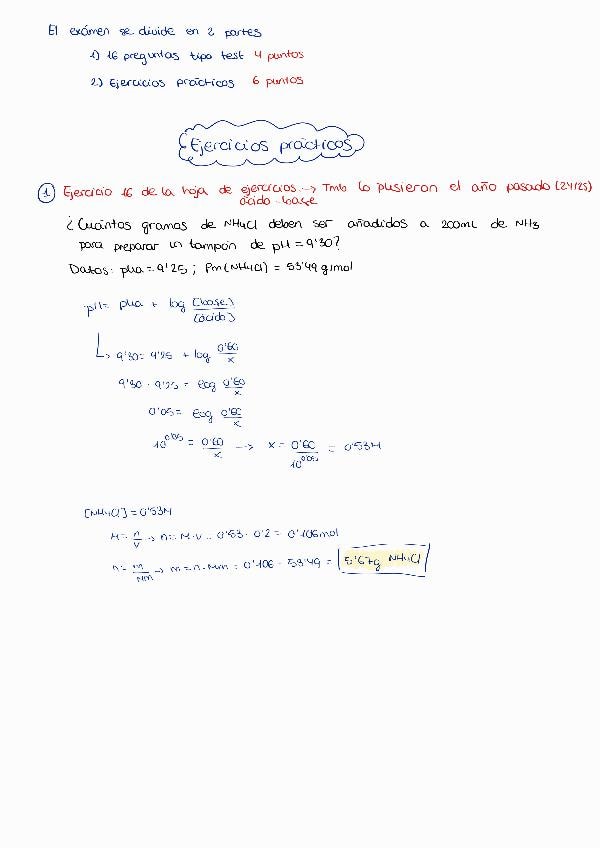 El exámen se divide en 2 partes
1) 16 preguntas tipo test 4 puntos
2) Ejercicios prácticos 6 puntos
Ejercicios prácticos
1 Ejercicio 16 de la hoja de ejercicios → Tmb lo pusieron el año pasado (24/25)
ácido-base
¿Cuántos gramos de NH4Cl deben ser añadidos a 200mL de NH3
para preparar un tampón de pH = 9'30?
Datos: pka = 9'25 ; Pm(NH4Cl) = 53'49 g/mol
pH = pka + log [base]/[ácido]
↳ 9'30 = 9'25 + log 0'60/x
9'30 - 9'25 = log 0'60/x
0'05 = log 0'60/x
10^0'05 = 0'60/x → x = 0'60/10^0'05 = 0'53M
[NH4Cl] = 0'53M
M = n/V → n = M·V = 0'53 · 0'2 = 0'106 mol
n = m/Mm → m = n·Mm = 0'106 · 53'49 = 5'67g NH4Cl